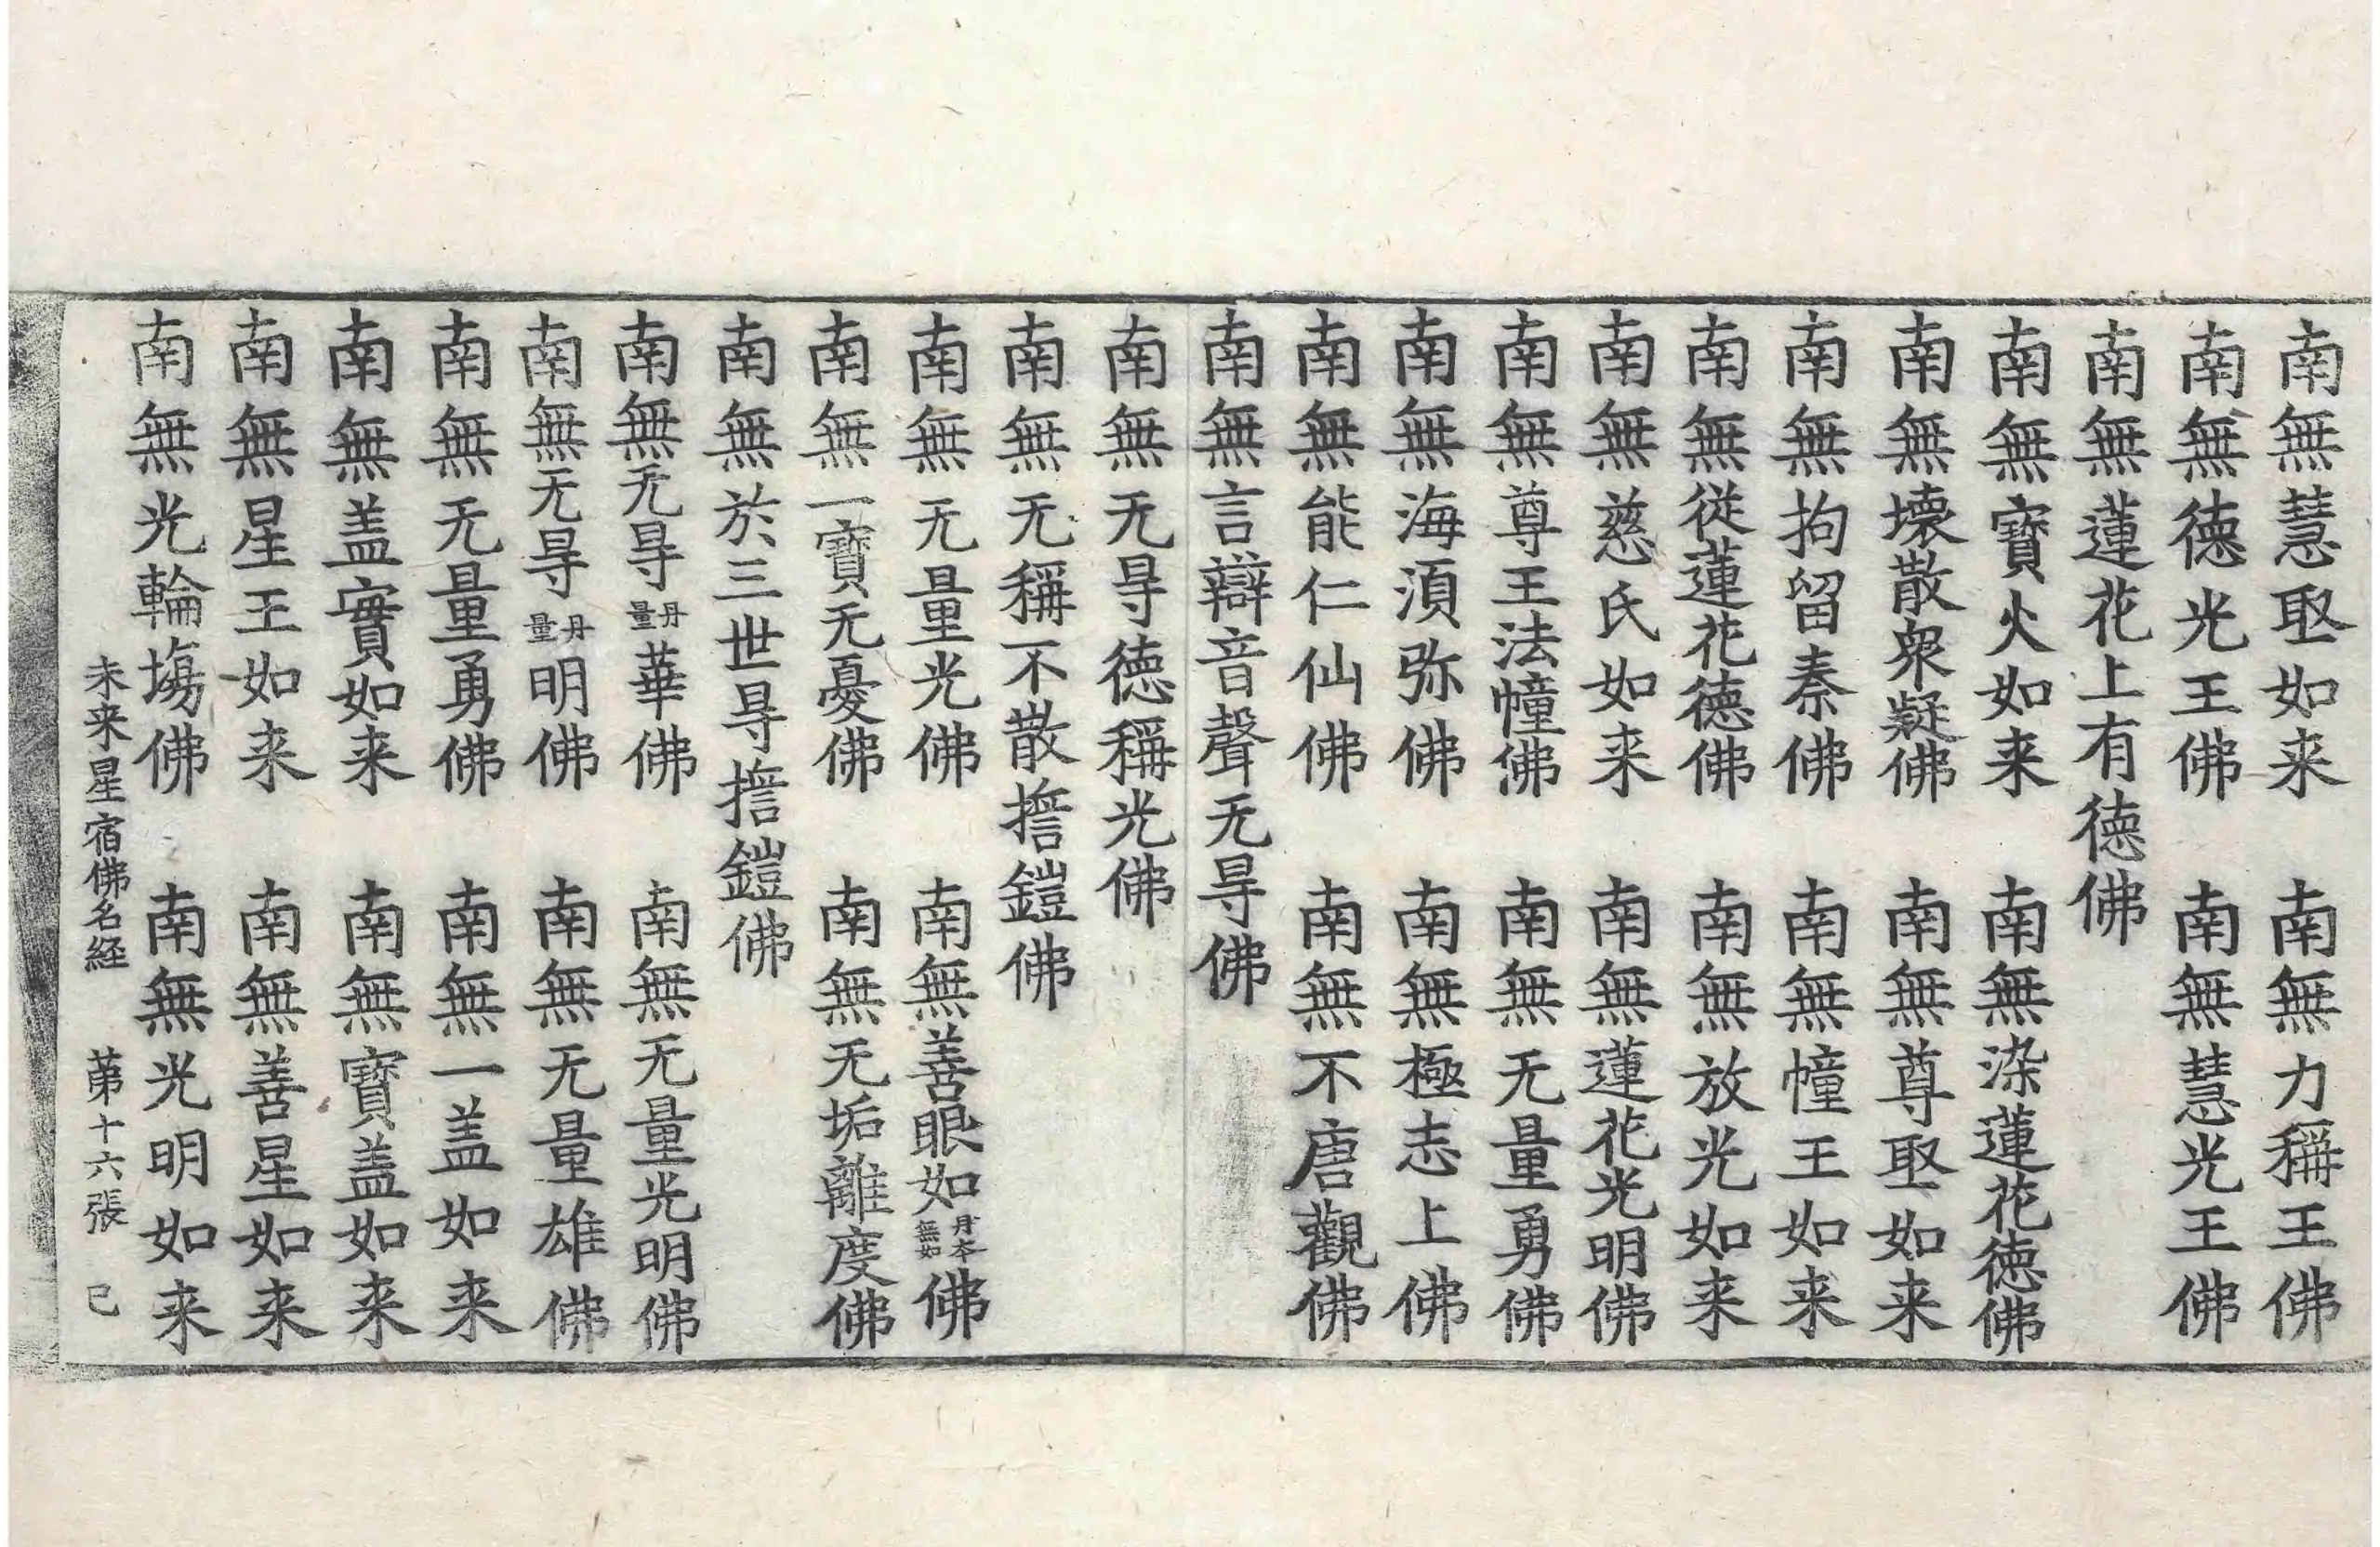 南無慧取如来　南無力稱王佛
南無德光王佛　南無慧光王佛
南無蓮花上有德佛
南無寶火如来　南無染蓮花德佛
南無壞散衆疑佛　南無尊取如来
南無拘留秦佛　南無幢王如来
南無從蓮花德佛　南無放光如来
南無慈氏如来　南無蓮花光明佛
南無尊王法幢佛　南無无量勇佛
南無海湏弥佛　南無極志上佛
南無能仁仙佛　南無不唐觀佛
南無言辯音聲无㝵佛
南無无㝵德稱光佛
南無无稱不散擔鎧佛
南無无量光佛　南無善眼如丹本無如佛
南無一寶无憂佛　南無无垢離度佛
南無於三世㝵擔鎧佛
南無无㝵丹量華佛　南無无量光明佛
南無无㝵丹量明佛　南無无量雄佛
南無无量勇佛　南無一盖如来
南無盖實如来　南無寶盖如来
南無星王如来　南無善星如来
南無光輪塲佛　南無光明如来
未来星宿佛名経　苐十六張　己